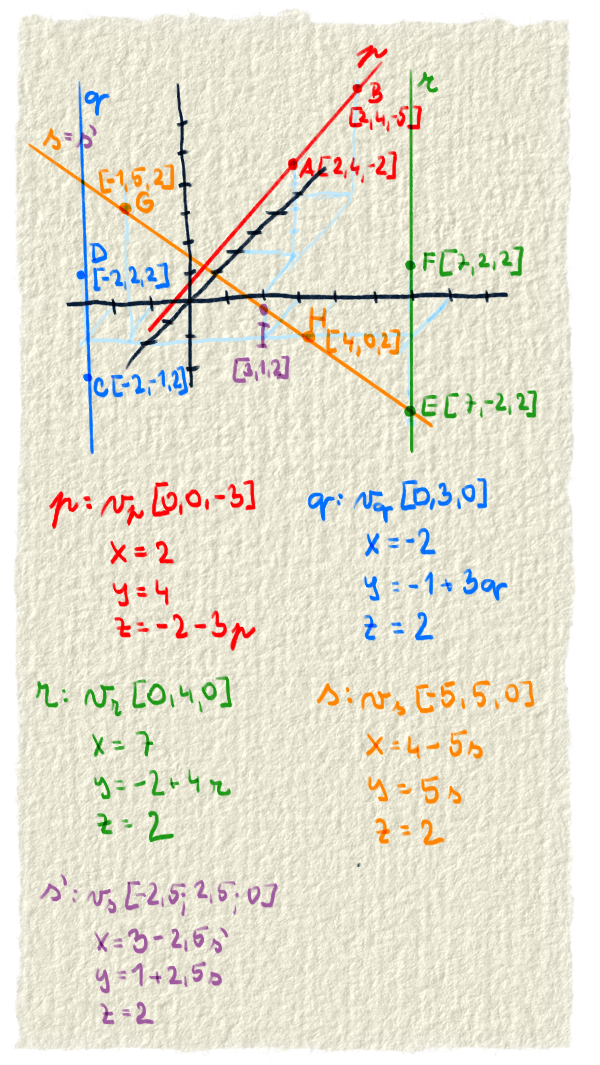 p
q
r
B
[2,4,-5]
s=s'
A[2,4,-2]
[-1,5,2]
G
D
[-2,2,2]
F[7,2,2]
H
[4,0,2]
I
[3,1,2]
C[-2,-1,2]
E[7,-2,2]
p: vp [0,0,-3]
x=2
y=4
z=-2-3p
q: vq [0,3,0]
x=-2
y=-1+3q
z=2
r: vr [0,4,0]
x=7
y=-2+4r
z=2
s: vs [-5,5,0]
x=4-5s
y=5s
z=2
s': vs [-2,5; 2,5; 0]
x=3-2,5s'
y=1+2,5s
z=2